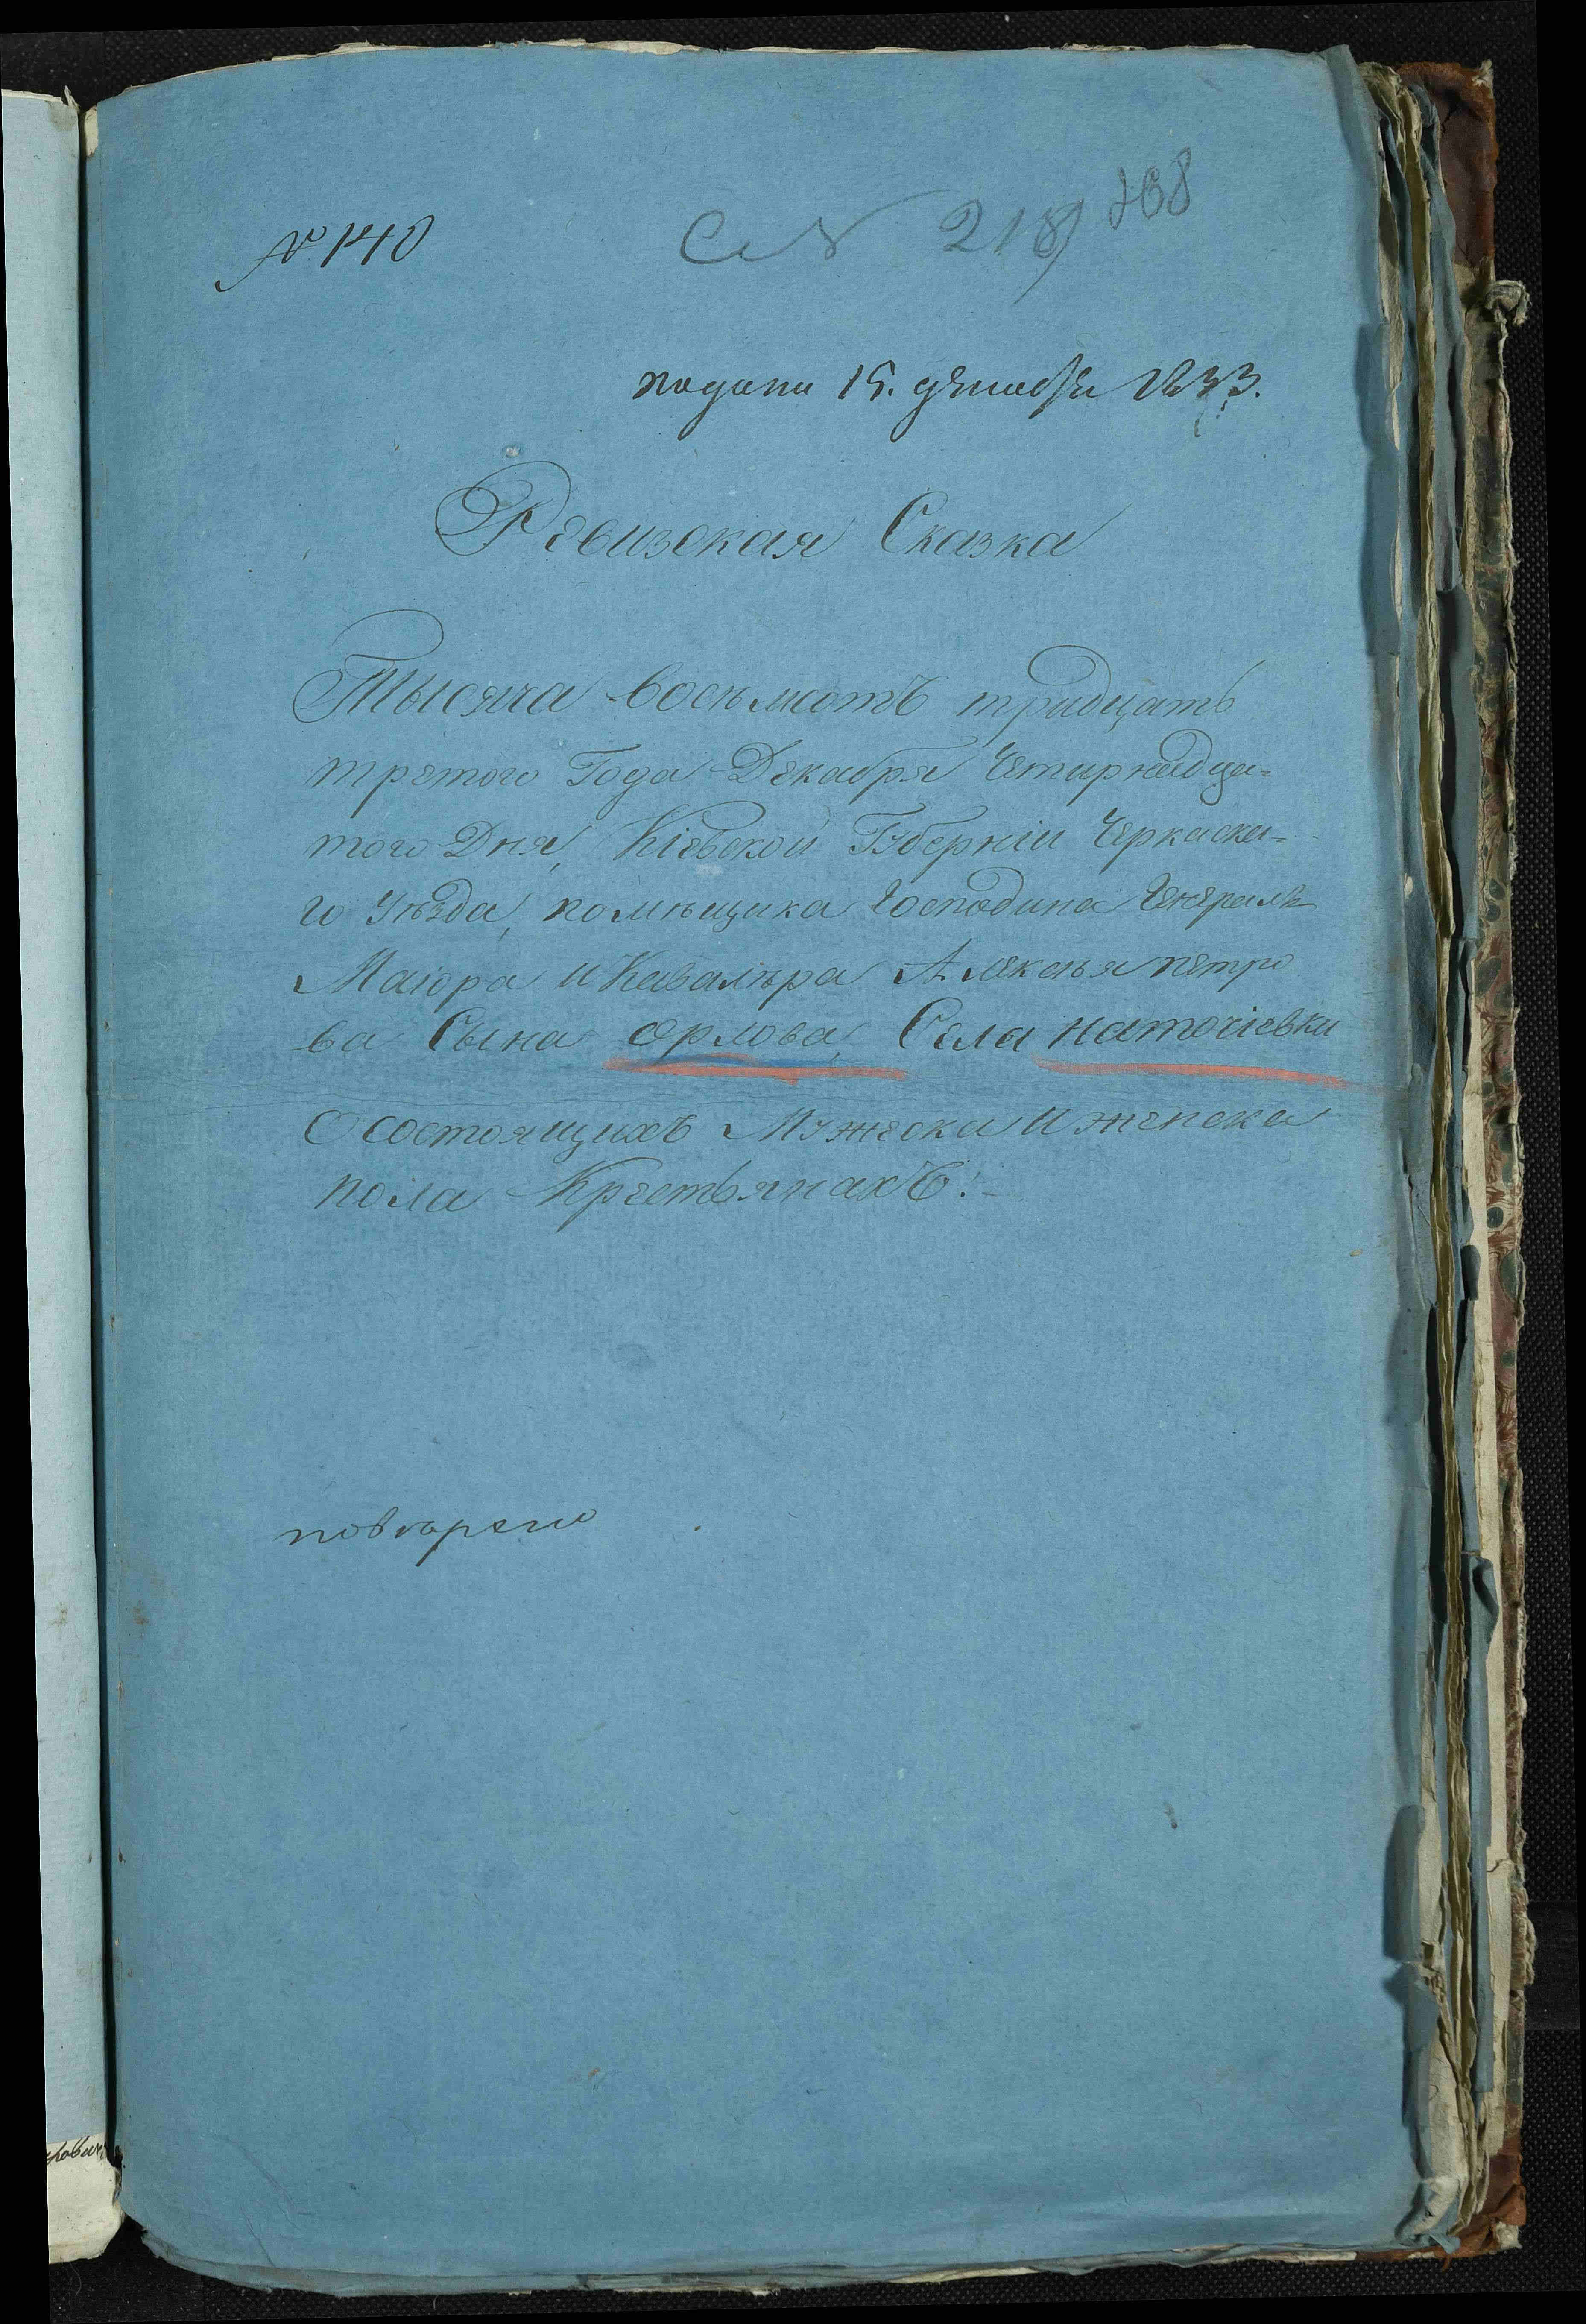 № 140
218) 768
подана 15. декабря 1833.
Ревизская Сказка
Тысяча восьмотъ тридцать
третого Года Декабря Четирнадца=
того Дня, Кіевской Губерніи Черкаска=
го Уѣзда, помѣщика Господина Генералъ
Маіора и Кавалѣра Алексѣя петро
ва Сына Орлова, Села Наточіевки
О состоящихъ Мужеска и женска
пола Крестьянахъ.